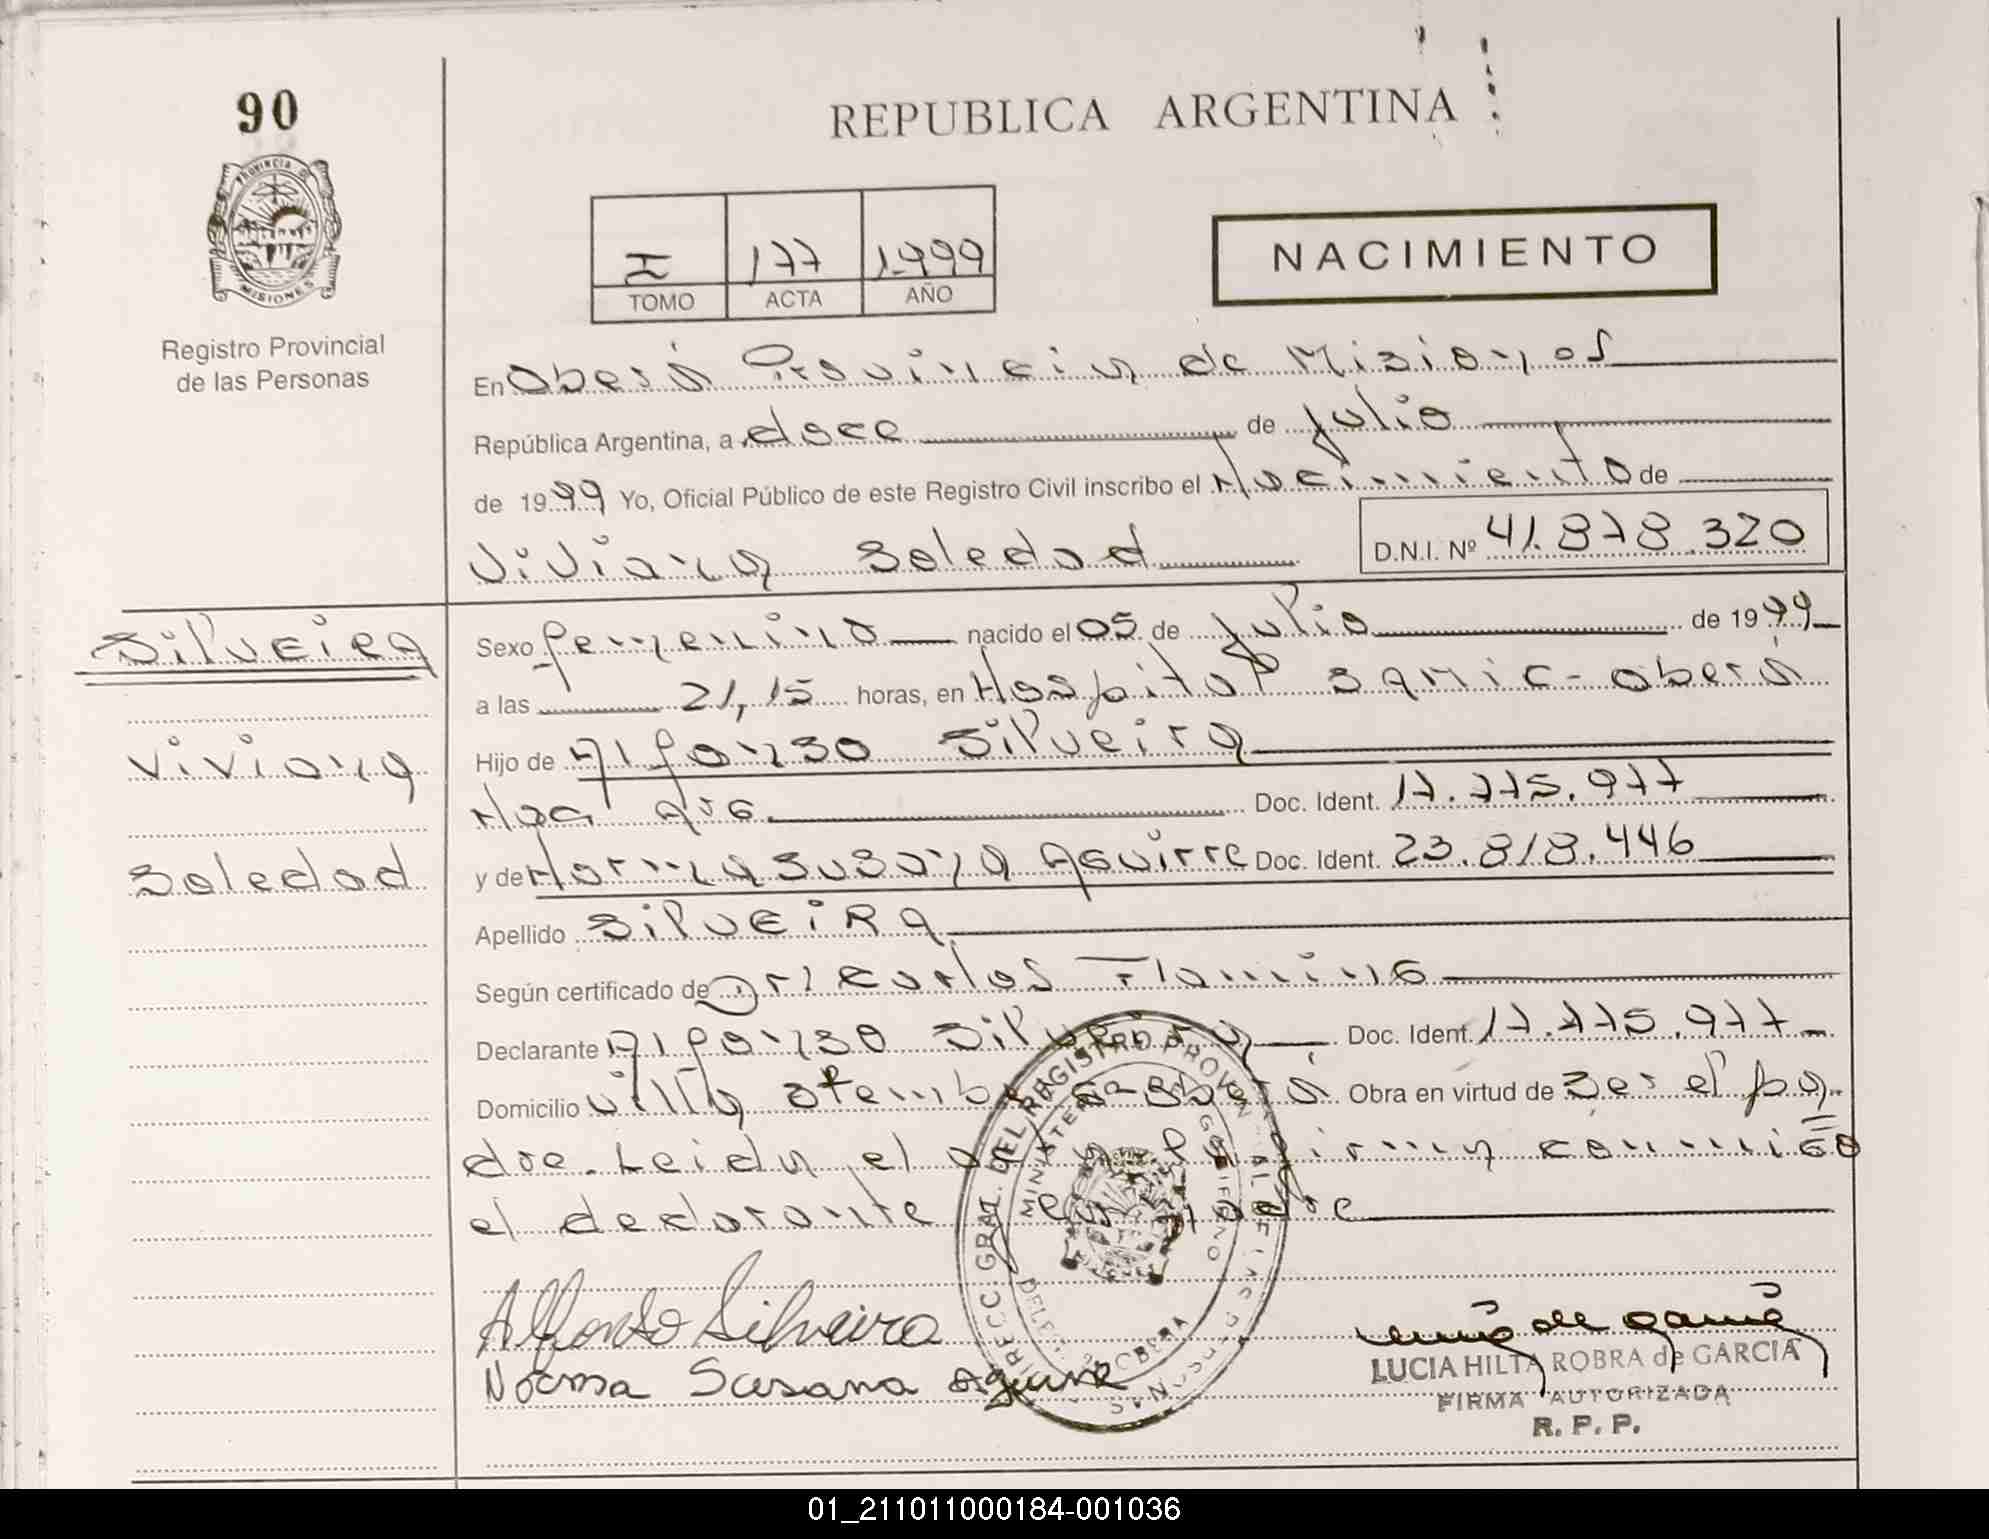 90
PROVINCIA D
MISIONES
Registro Provincial
de las Personas
REPUBLICA ARGENTINA
I 177 1.999
TOMO ACTA AÑO
NACIMIENTO
En Oberá Provincia de Misiones
República Argentina, a doce de Julio
de 1999 Yo, Oficial Público de este Registro Civil inscribo el Nacimiento de
Viviana Soledad D.N.I. Nº 41.878.320
Silveira
Viviana
Soledad
Sexo femenino nacido el 05 de Julio de 1999
a las 21,15 horas, en Hospital Samic - Oberá
Hijo de Alfonso Silveira
Doc. Ident. 17.775.977
y de Norma Susana Aguirre Doc. Ident. 23.818.446
Apellido Silveira
Según certificado de Carlos
Declarante Alfonso Silveira Doc. Ident. 17.775.977
Domicilio Villa Oberá Obra en virtud de ser el pa
dre. Leida el firma conmigo
el declarante y la madre
Alfonso Silveira
Norma Susana Aguirre
DIRECC. GRAL. DEL REGISTRO PROVINCIAL DE LAS PERSONAS
MINISTERIO DE GOBIERNO
OBERA
LUCIA HILTA ROBRA de GARCIA
FIRMA AUTORIZADA
R. P. P.
01_211011000184-001036